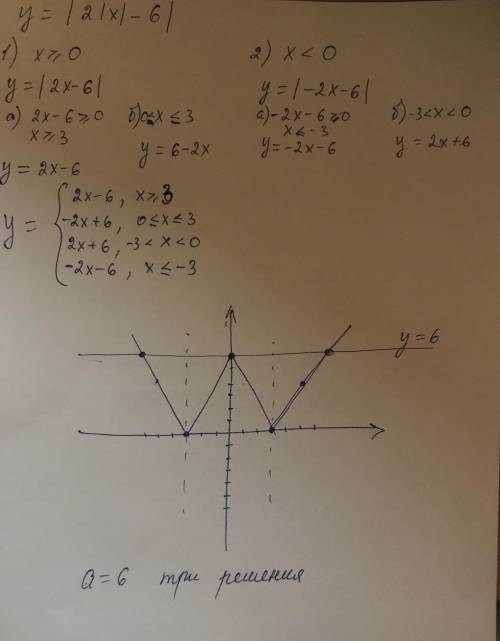 y = |2|x| - 6|
1) x ⩾ 0
y = |2x-6|
а) 2x-6 ⩾ 0
x ⩾ 3
y = 2x-6
б) 0 ≤ x ≤ 3
y = 6-2x
2) x < 0
y = |-2x-6|
а) -2x-6 ⩾ 0
x ≤ -3
y = -2x-6
б) -3 < x < 0
y = 2x+6
y = { 2x-6 , x ⩾ 3
-2x+6 , 0 ≤ x ≤ 3
2x+6 , -3 < x < 0
-2x-6 , x ≤ -3
y = 6
a = 6 три решения